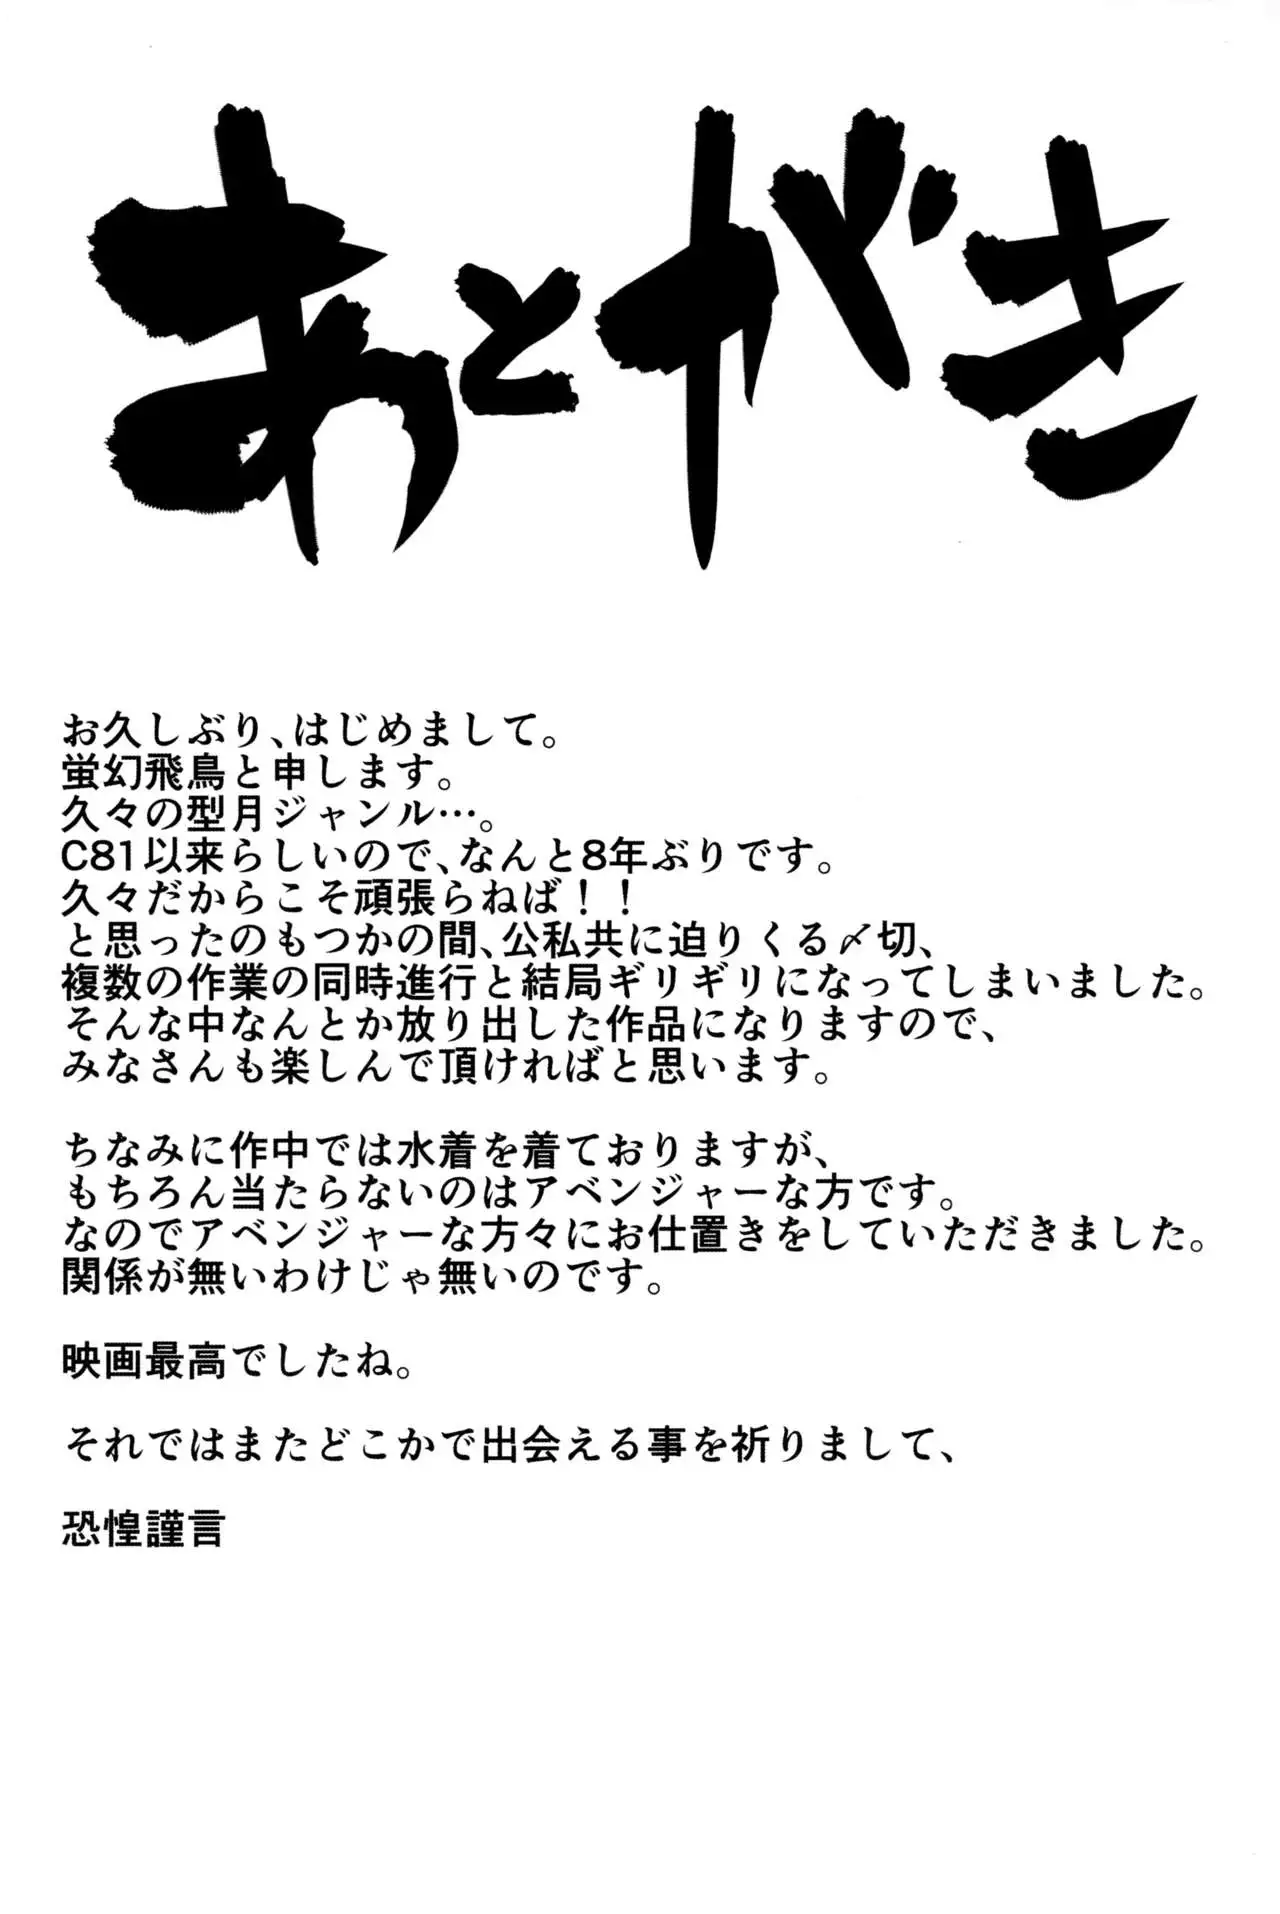 あとがき
お久しぶり、はじめまして。
蛍幻飛鳥と申します。
久々の型月ジャンル…。
C81以来らしいので、なんと8年ぶりです。
久々だからこそ頑張らねば！！
と思ったのもつかの間、公私共に迫りくる〆切、
複数の作業の同時進行と結局ギリギリになってしまいました。
そんな中なんとか放り出した作品になりますので、
みなさんも楽しんで頂ければと思います。
ちなみに作中では水着を着ておりますが、
もちろん当たらないのはアベンジャーな方です。
なのでアベンジャーな方々にお仕置きをしていただきました。
関係が無いわけじゃ無いのです。
映画最高でしたね。
それではまたどこかで出会える事を祈りまして、
恐惶謹言